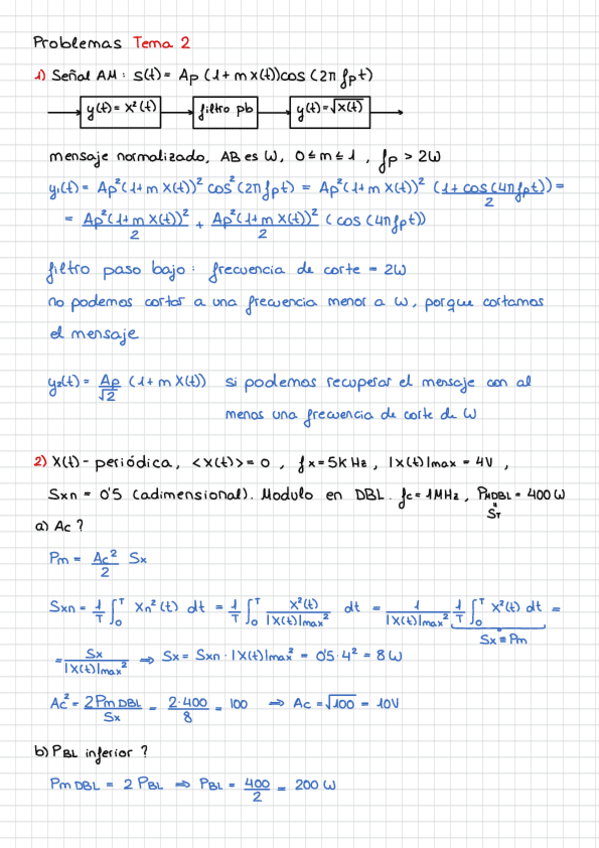 Problemas Tema 2
1) Señal AM: s(t) = Ap (1 + m x(t)) cos (2π fp t)
y(t) = x²(t) filtro pb y(t) = √x(t)
mensaje normalizado, AB es W, 0 ≤ m ≤ 1, fp > 2W
y₁(t) = Ap² (1 + m x(t))² cos² (2π fp t) = Ap² (1 + m x(t))² (1 + cos (4π fp t))/2 =
= Ap² (1 + m x(t))²/2 + Ap² (1 + m x(t))²/2 (cos (4π fp t))
filtro paso bajo: frecuencia de corte = 2W
no podemos cortar a una frecuencia menor a W, porque cortamos
el mensaje
y₂(t) = Ap/√2 (1 + m x(t)) si podemos recuperar el mensaje con al
menos una frecuencia de corte de W
2) x(t) - periódica, <x(t)> = 0, fx = 5kHz, |x(t)|max = 4V,
Sxn = 0'5 (adimensional). Modulo en DBL. fc = 1MHz, PMDBL = 400 W
ST
a) Ac?
Pm = Ac²/2 Sx
Sxn = 1/T ∫₀ᵀ Xn²(t) dt = 1/T ∫₀ᵀ x²(t)/|x(t)|max² dt = 1/|x(t)|max² 1/T ∫₀ᵀ x²(t) dt =
Sx = Pm
= Sx/|x(t)|max² ⇒ Sx = Sxn · |x(t)|max² = 0'5 · 4² = 8 W
Ac² = 2PmDBL/Sx = 2·400/8 = 100 ⇒ Ac = √100 = 10V
b) PBL inferior?
PmDBL = 2 PBL ⇒ PBL = 400/2 = 200 W